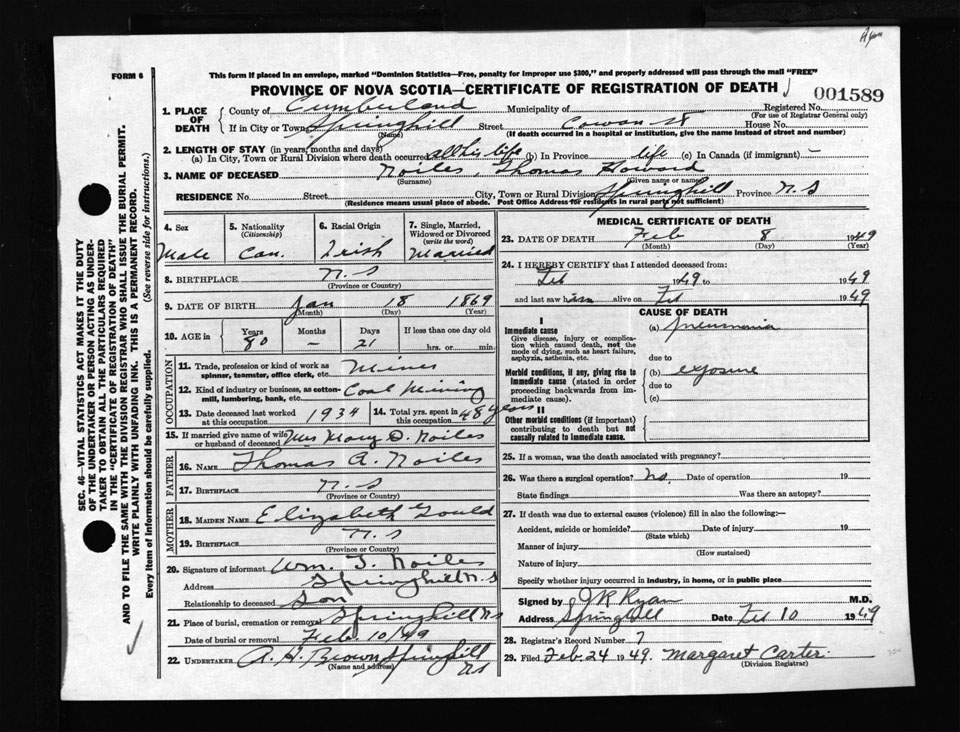 FORM 6
This form if placed in an envelope, marked "Dominion Statistics—Free, penalty for improper use $300," and properly addressed will pass through the mail "FREE"
PROVINCE OF NOVA SCOTIA—CERTIFICATE OF REGISTRATION OF DEATH
001589
1. PLACE OF DEATH
County of Cumberland Municipality of Registered No.
(For use of Registrar General only)
If in City or Town Springhill Street Cowan St House No.
(Name) (If death occurred in a hospital or institution, give the name instead of street and number)
2. LENGTH OF STAY (in years, months and days)
(a) In City, Town or Rural Division where death occurred all his life (b) In Province life (c) In Canada (if immigrant) -
3. NAME OF DECEASED Noiles, Thomas Howard
(Surname) (Given name or names)
RESIDENCE No. Street City, Town or Rural Division Springhill Province N.S
(Residence means usual place of abode. Post Office Address for residents in rural parts not sufficient)
4. Sex
Male
5. Nationality (Citizenship)
Can.
6. Racial Origin
Irish
7. Single, Married, Widowed or Divorced (write the word)
Married
8. BIRTHPLACE N.S
(Province or Country)
9. DATE OF BIRTH Jan 18 1869
(Month) (Day) (Year)
10. AGE in
Years Months Days If less than one day old
80 - 21 hrs. or min.
OCCUPATION
11. Trade, profession or kind of work as spinner, teamster, office clerk, etc. Miner
12. Kind of industry or business, as cotton-mill, lumbering, bank, etc. Coal Mining
13. Date deceased last worked at this occupation 1934
14. Total yrs. spent in this occupation 48 years
15. If married give name of wife or husband of deceased Mrs Mary D. Noiles
FATHER
16. NAME Thomas A. Noiles
17. BIRTHPLACE N.S
(Province or Country)
MOTHER
18. MAIDEN NAME Elizabeth Gould
19. BIRTHPLACE N.S
(Province or Country)
20. Signature of informant Wm. T. Noiles
Address Springhill N.S
Relationship to deceased Son
21. Place of burial, cremation or removal Springhill NS
Date of burial or removal Feb. 10/49
22. UNDERTAKER A. H. Brown Springhill NS
(Name and address)
MEDICAL CERTIFICATE OF DEATH
23. DATE OF DEATH Feb 8 1949
(Month) (Day) (Year)
24. I HEREBY CERTIFY that I attended deceased from:
Feb 1949 to 1949
and last saw him alive on Feb 1949
CAUSE OF DEATH
I
Immediate cause
Give disease, injury or complication which caused death, not the mode of dying, such as heart failure, asphyxia, asthenia, etc.
(a) pneumonia
due to
Morbid conditions, if any, giving rise to immediate cause (stated in order proceeding backwards from immediate cause).
(b) exposure
due to
(c)
II
Other morbid conditions (if important) contributing to death but not causally related to immediate cause.
25. If a woman, was the death associated with pregnancy?
26. Was there a surgical operation? No. Date of operation 19
State findings Was there an autopsy?
27. If death was due to external causes (violence) fill in also the following:—
Accident, suicide or homicide? Date of injury 19
(State which)
Manner of injury
(How sustained)
Nature of injury
Specify whether injury occurred in industry, in home, or in public place
Signed by J R Ryan M.D.
Address Springhill Date Feb 10 1949
28. Registrar's Record Number 7
29. Filed Feb. 24 1949. Margaret Carter.
(Division Registrar)
SEC. 46—VITAL STATISTICS ACT MAKES IT THE DUTY
OF THE UNDERTAKER OR PERSON ACTING AS UNDER-
TAKER TO OBTAIN ALL THE PARTICULARS REQUIRED
IN THE "CERTIFICATE OF REGISTRATION OF DEATH"
AND TO FILE THE SAME WITH THE DIVISION REGISTRAR WHO SHALL ISSUE THE BURIAL PERMIT.
WRITE PLAINLY WITH UNFADING INK. THIS IS A PERMANENT RECORD.
Every item of information should be carefully supplied. (See reverse side for instructions.)